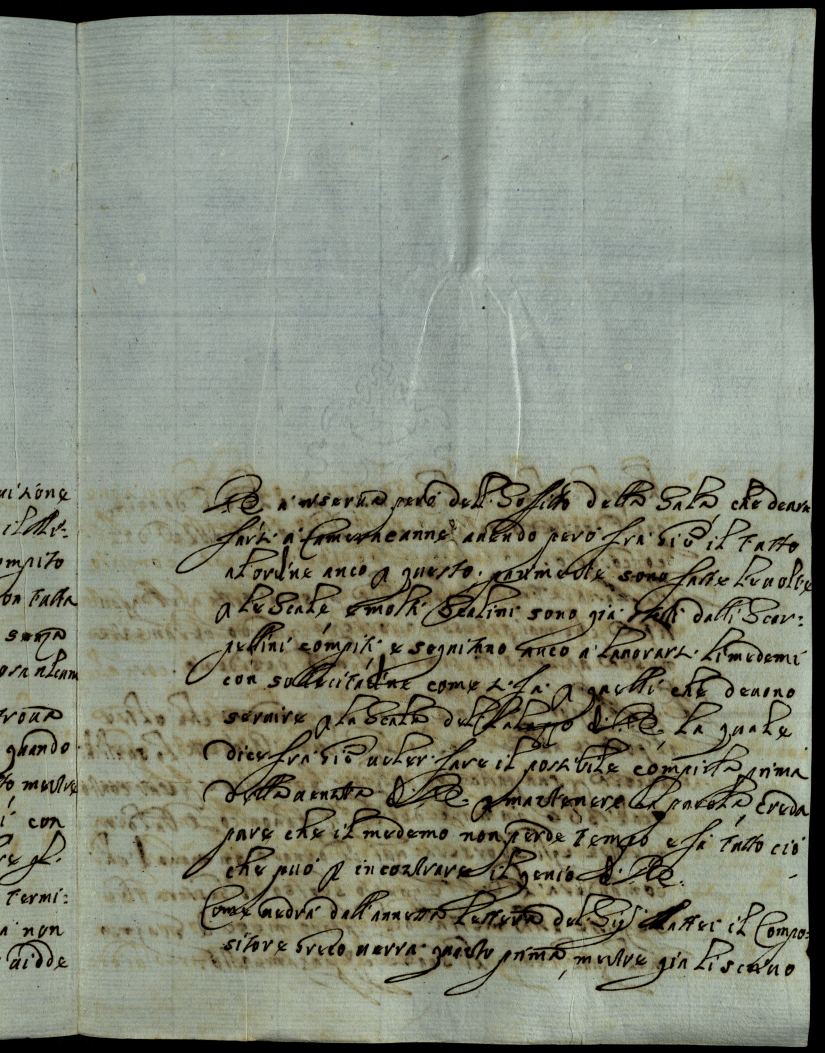 uizone
il
ompito
on fatta
senza
troua
quando
to mentre
i con
re
Termi:
a non
aidde
à riserua però dell Soffitto della Sala che deue
farsi à Camera canne auendo però frà Giò il tutto
al ordine anco p questo. parimente sono fatte le uolte
p le Scale e molti Scalini sono già dalli Scar:
pellini compiti e seguitano anco à lauorarsi li medemi
con sollecitudine come si fà p quelli che deuono
seruire p la Scala del Palazzo la quale
dice frà Giò uoler fare il possibile compirla prima
della uenuta p mantenere la parola e creda
pure che il medemo non perde tempo e fà tutto ciò
che può p incontrare il genio
Come uedrà dall annessa lettera del Sig Mattei il Compo:
sitore Greco uerrà quanto prima, mentre già li scriuo